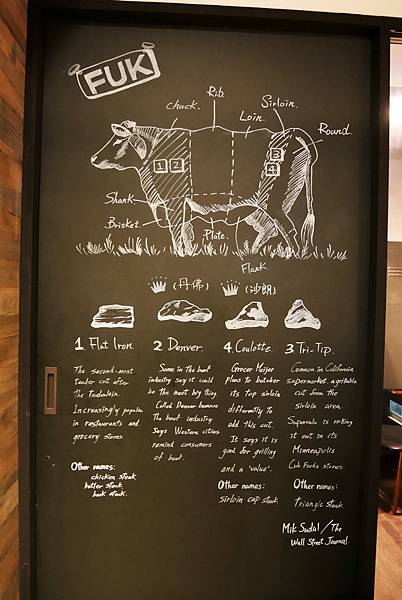 FUK
Rib
chuck.
Sirloin.
Loin.
Round.
1 2
3
4
Shank
Brisket.
Plate.
Flank.
(丹佛)
(沙朗)
1 Flat Iron.
The second-most
tender cut after
the Tenderloin.
Increasingly popular
in restaurants and
grocery stores
Other names:
chicken steak
butler steak
book steak.
2 Denver.
Some in the beef
industry say it could
be the next big thing.
Called Denver because
The beef industry
says Western cities
remind consumers
of beef.
4. Coulotte.
Grocer Meijer
Plans to butcher
its top sirloin
differently to
add this cut.
It says it is
good for grilling
and a 'value'.
Other names:
sirloin cap steak
3. Tri-Tip.
Common in California
supermarket. a grillable
cut from the
sirloin area.
Supervalu is rolling
it out in its
Minneapolis
Cub Foods stores.
Other names:
Triangle steak
Mik Sudal / The
Wall Street Journal